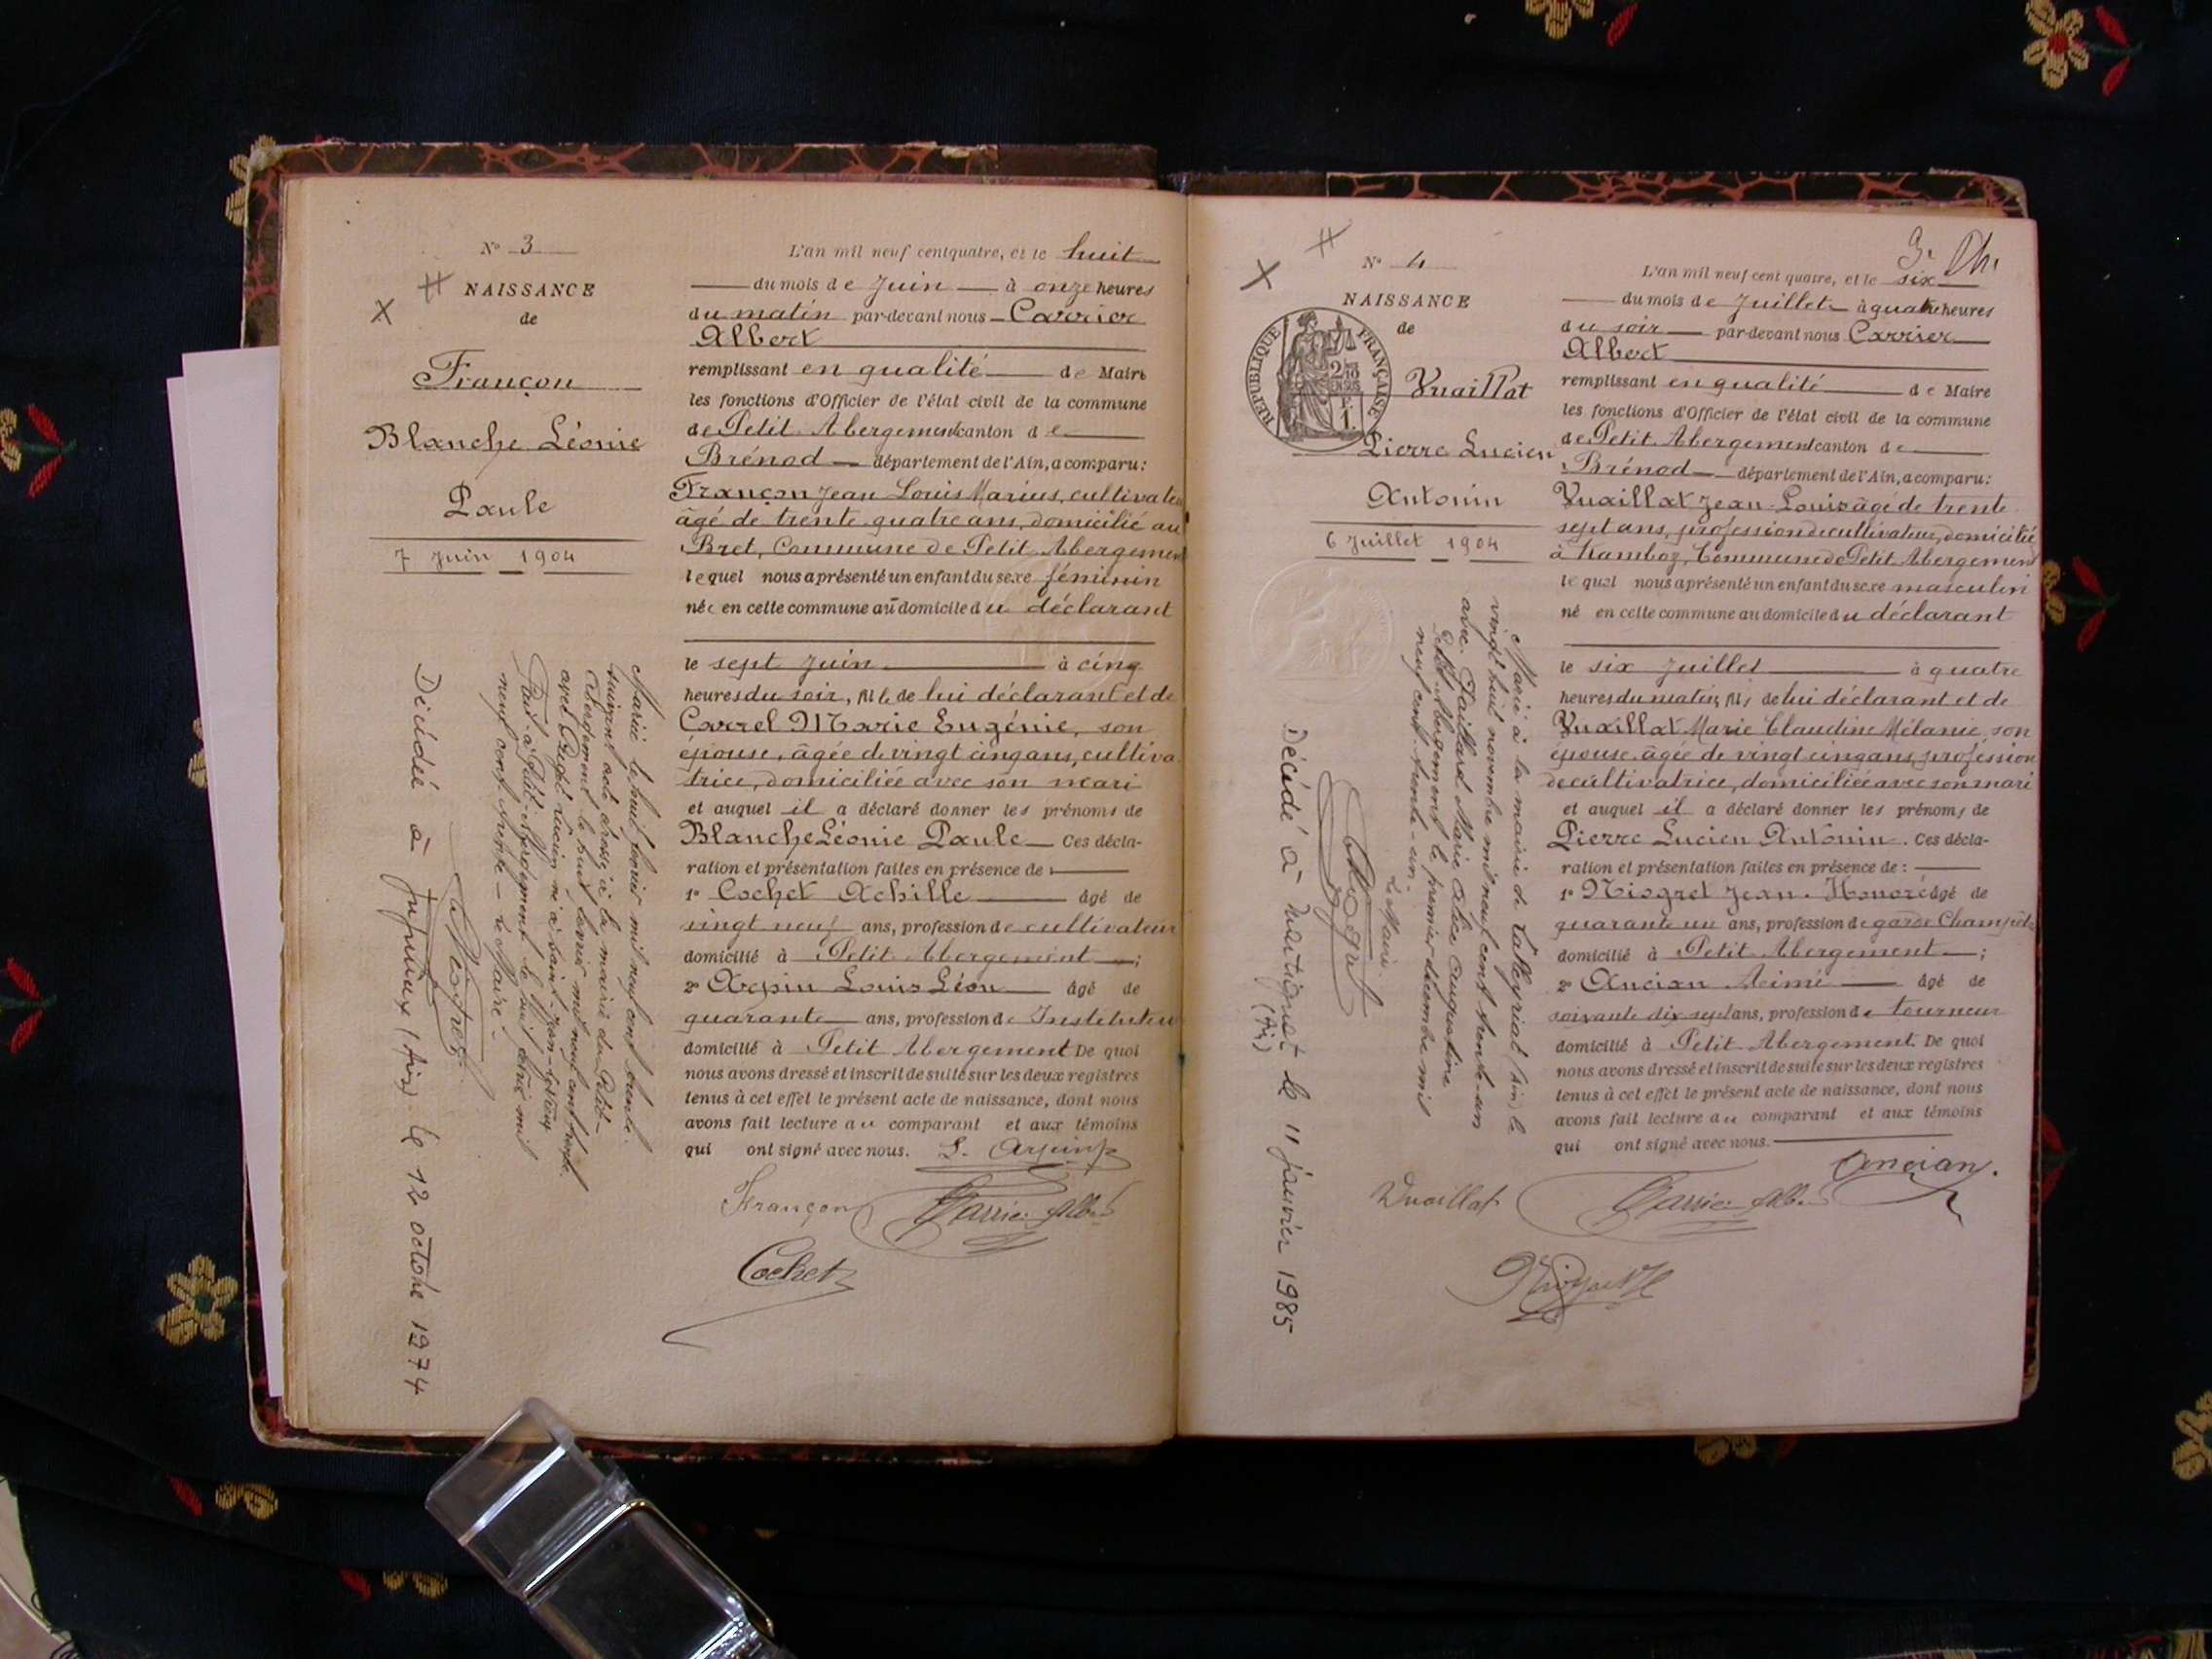 N° 3
NAISSANCE
de
Françon
Blanche Léonie
Paule
7 Juin 1904
L'an mil neuf cent quatre, et le huit
du mois de Juin à onze heures
du matin par-devant nous Carrier
Albert
remplissant en qualité de Maire
les fonctions d'Officier de l'état civil de la commune
de Petit Abergement canton de
Brénod département de l'Ain, a comparu:
Françon Jean Louis Marius, cultivateur
âgé de trente quatre ans, domicilié au
Bret, Commune de Petit Abergement
lequel nous a présenté un enfant du sexe féminin
née en cette commune au domicile du déclarant
le sept Juin à cinq
heures du soir, fille de lui déclarant et de
Carrel Marie Eugénie, son
épouse, âgée de vingt cinq ans, cultiva
trice, domiciliée avec son mari
et auquel il a déclaré donner les prénoms de
Blanche Léonie Paule Ces décla-
ration et présentation faites en présence de :
1° Cochet Achille âgé de
vingt neuf ans, profession de cultivateur
domicilié à Petit Abergement ;
2° Arpin Louis Léon âgé de
quarante ans, profession de Instituteur
domicilié à Petit Abergement De quoi
nous avons dressé et inscrit de suite sur les deux registres
tenus à cet effet le présent acte de naissance, dont nous
avons fait lecture au comparant et aux témoins
qui ont signé avec nous. L. Arpin
Françon Carrier Albert
Cochet
Mariée le huit février mil neuf cent trente.
suivant acte dressé à la mairie du Petit-
Abergement le huit février mil neuf cent trente.
avec Lucien né à Saint-Jean-
à Petit-Abergement le huit mil
neuf cent trente - Le Maire -
Décédée à Jujurieux (Ain) le 12 octobre 1974
3. Dh.
N° 4
NAISSANCE
de
RÉPUBLIQUE FRANÇAISE
Vuaillat
Pierre Lucien
Antonin
6 Juillet 1904
L'an mil neuf cent quatre, et le six
du mois de Juillet à quatre heures
du soir par-devant nous Carrier
Albert
remplissant en qualité de Maire
les fonctions d'Officier de l'état civil de la commune
de Petit Abergement canton de
Brénod département de l'Ain, a comparu:
Vuaillat Jean Louis âgé de trente
sept ans, profession de cultivateur, domicilié
à Jamboz, Commune de Petit Abergement
lequel nous a présenté un enfant du sexe masculin
né en cette commune au domicile du déclarant
le six Juillet à quatre
heures du matin, fils de lui déclarant et de
Vuaillat Marie Claudine Mélanie, son
épouse, âgée de vingt cinq ans, profession
de cultivatrice, domiciliée avec son mari
et auquel il a déclaré donner les prénoms de
Pierre Lucien Antonin. Ces décla-
ration et présentation faites en présence de :
1° Niogret Jean Honoré âgé de
quarante un ans, profession de garde Champêtre
domicilié à Petit Abergement ;
2° Ancian Aimé âgé de
soixante dix sept ans, profession de tourneur
domicilié à Petit Abergement. De quoi
nous avons dressé et inscrit de suite sur les deux registres
tenus à cet effet le présent acte de naissance, dont nous
avons fait lecture au comparant et aux témoins
qui ont signé avec nous.
Ancian.
Vuaillat Carrier Alb.
Niogret
Marié à la mairie de Talleyriat (Ain) le
vingt huit novembre mil neuf cent trente-un
avec Paillard Marie Alice Augustine.
Petit-Abergement le premier décembre mil
neuf cent trente-un.
Le Maire.
Niogret
Décédé à Martignat le 11 janvier 1985
(Ain)